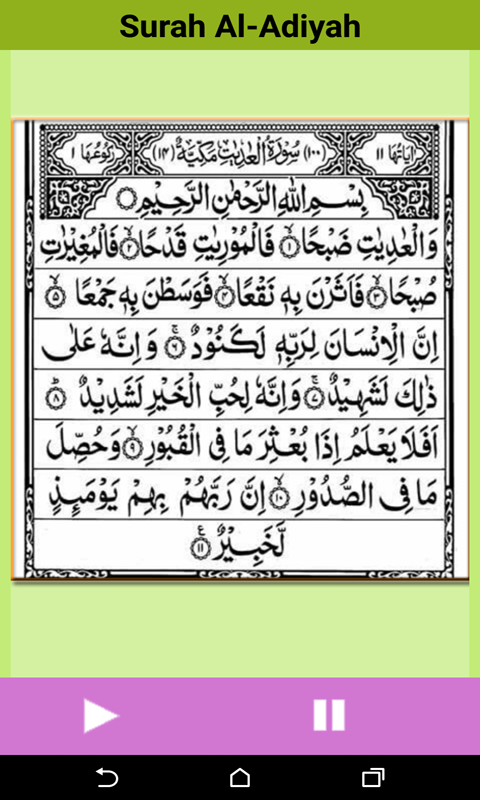 Surah Al-Adiyah
اٰيَاتُهَا ١١ (١٠٠) سُوْرَةُ الْعٰدِيٰتِ مَكِّيَّةٌ (١٤) رُكُوْعُهَا ١
بِسْمِ اللّٰهِ الرَّحْمٰنِ الرَّحِيْمِ ۝
وَالْعٰدِيٰتِ ضَبْحًا ۝١ فَالْمُوْرِيٰتِ قَدْحًا ۝٢ فَالْمُغِيْرٰتِ
صُبْحًا ۝٣ فَاَثَرْنَ بِهٖ نَقْعًا ۝٤ فَوَسَطْنَ بِهٖ جَمْعًا ۝٥
اِنَّ الْاِنْسَانَ لِرَبِّهٖ لَكَنُوْدٌ ۝٦ۚ وَاِنَّهٗ عَلٰى
ذٰلِكَ لَشَهِيْدٌ ۝٧ۚ وَاِنَّهٗ لِحُبِّ الْخَيْرِ لَشَدِيْدٌ ۝٨ؕ
اَفَلَا يَعْلَمُ اِذَا بُعْثِرَ مَا فِى الْقُبُوْرِ ۝٩ وَحُصِّلَ
مَا فِى الصُّدُوْرِ ۝١٠ اِنَّ رَبَّهُمْ بِهِمْ يَوْمَئِذٍ
لَّخَبِيْرٌ ۝١١ع